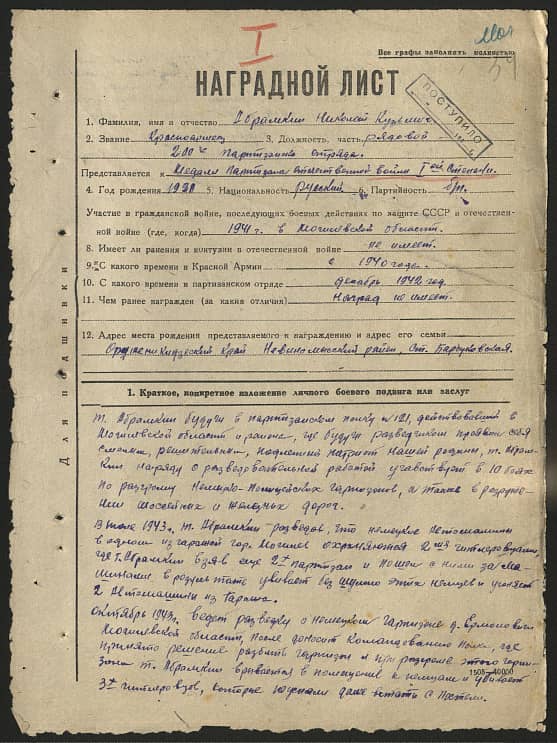 I
Все графы заполнять полностью
НАГРАДНОЙ ЛИСТ
ПОСТУПИЛО
1. Фамилия, имя и отчество Абрамкин Николай Кузьмич
2. Звание Красноармеец 3. Должность, часть рядовой
200го партизанского отряда.
Представляется к Медали Партизана отечественной войны Iой Степени.
4. Год рождения 5. Национальность Русский 6. Партийность б/п.
Участие в гражданской войне, последующих боевых действиях по защите СССР и отечествен-
ной войне (где, когда) 1941г. в Могилевской области.
8. Имеет ли ранения и контузии в отечественной войне не имеет.
9. С какого времени в Красной Армии с 1940 года.
10. С какого времени в партизанском отряде декабрь 1942 год.
11. Чем ранее награжден (за какия отличия) Наград не имеет.
12. Адрес места рождения представляемого к награждению и адрес его семьи
Орджоникидзевский край Невиномысский район, Ст. Барсуковская.
Для подшивки
1. Краткое, конкретное изложение личного боевого подвига или заслуг
т. Абрамкин будучи в партизанском полку №121, действовавшим в
Могилевской области и районе, где будучи разведчиком проявил себя
смелым, решительным, патриот нашей родины, т. Абрам-
кин наряду с разведовательной работой участвует в 10 боях
по разгрому Немецко-Полицейских гарнизонов, а также в разруше-
нии шоссейных и железных дорог.
В июле 1943г. т. Абрамкин разведав, что немецкие автомашины
в одном из гаражей гор. Могилев охраняются 2мя гитлеровцами,
где т. Абрамкин взяв еще 2х партизан и пошел с ними за ма-
шинами в результате убивает без шума этих немцев и угоняет
2 автомашины из гаража.
Октябрь 1943г. ведет разведку о немецком гарнизоне д.
Могилевской области, после доносит командованию полка, где
принято решение разбить гарнизон и при разгроме этого гарни-
зона т. Абрамкин врывается в помещение к немцам и убивает
3х гитлеровцев, которые не успели даже встать с постели.
1505—40000